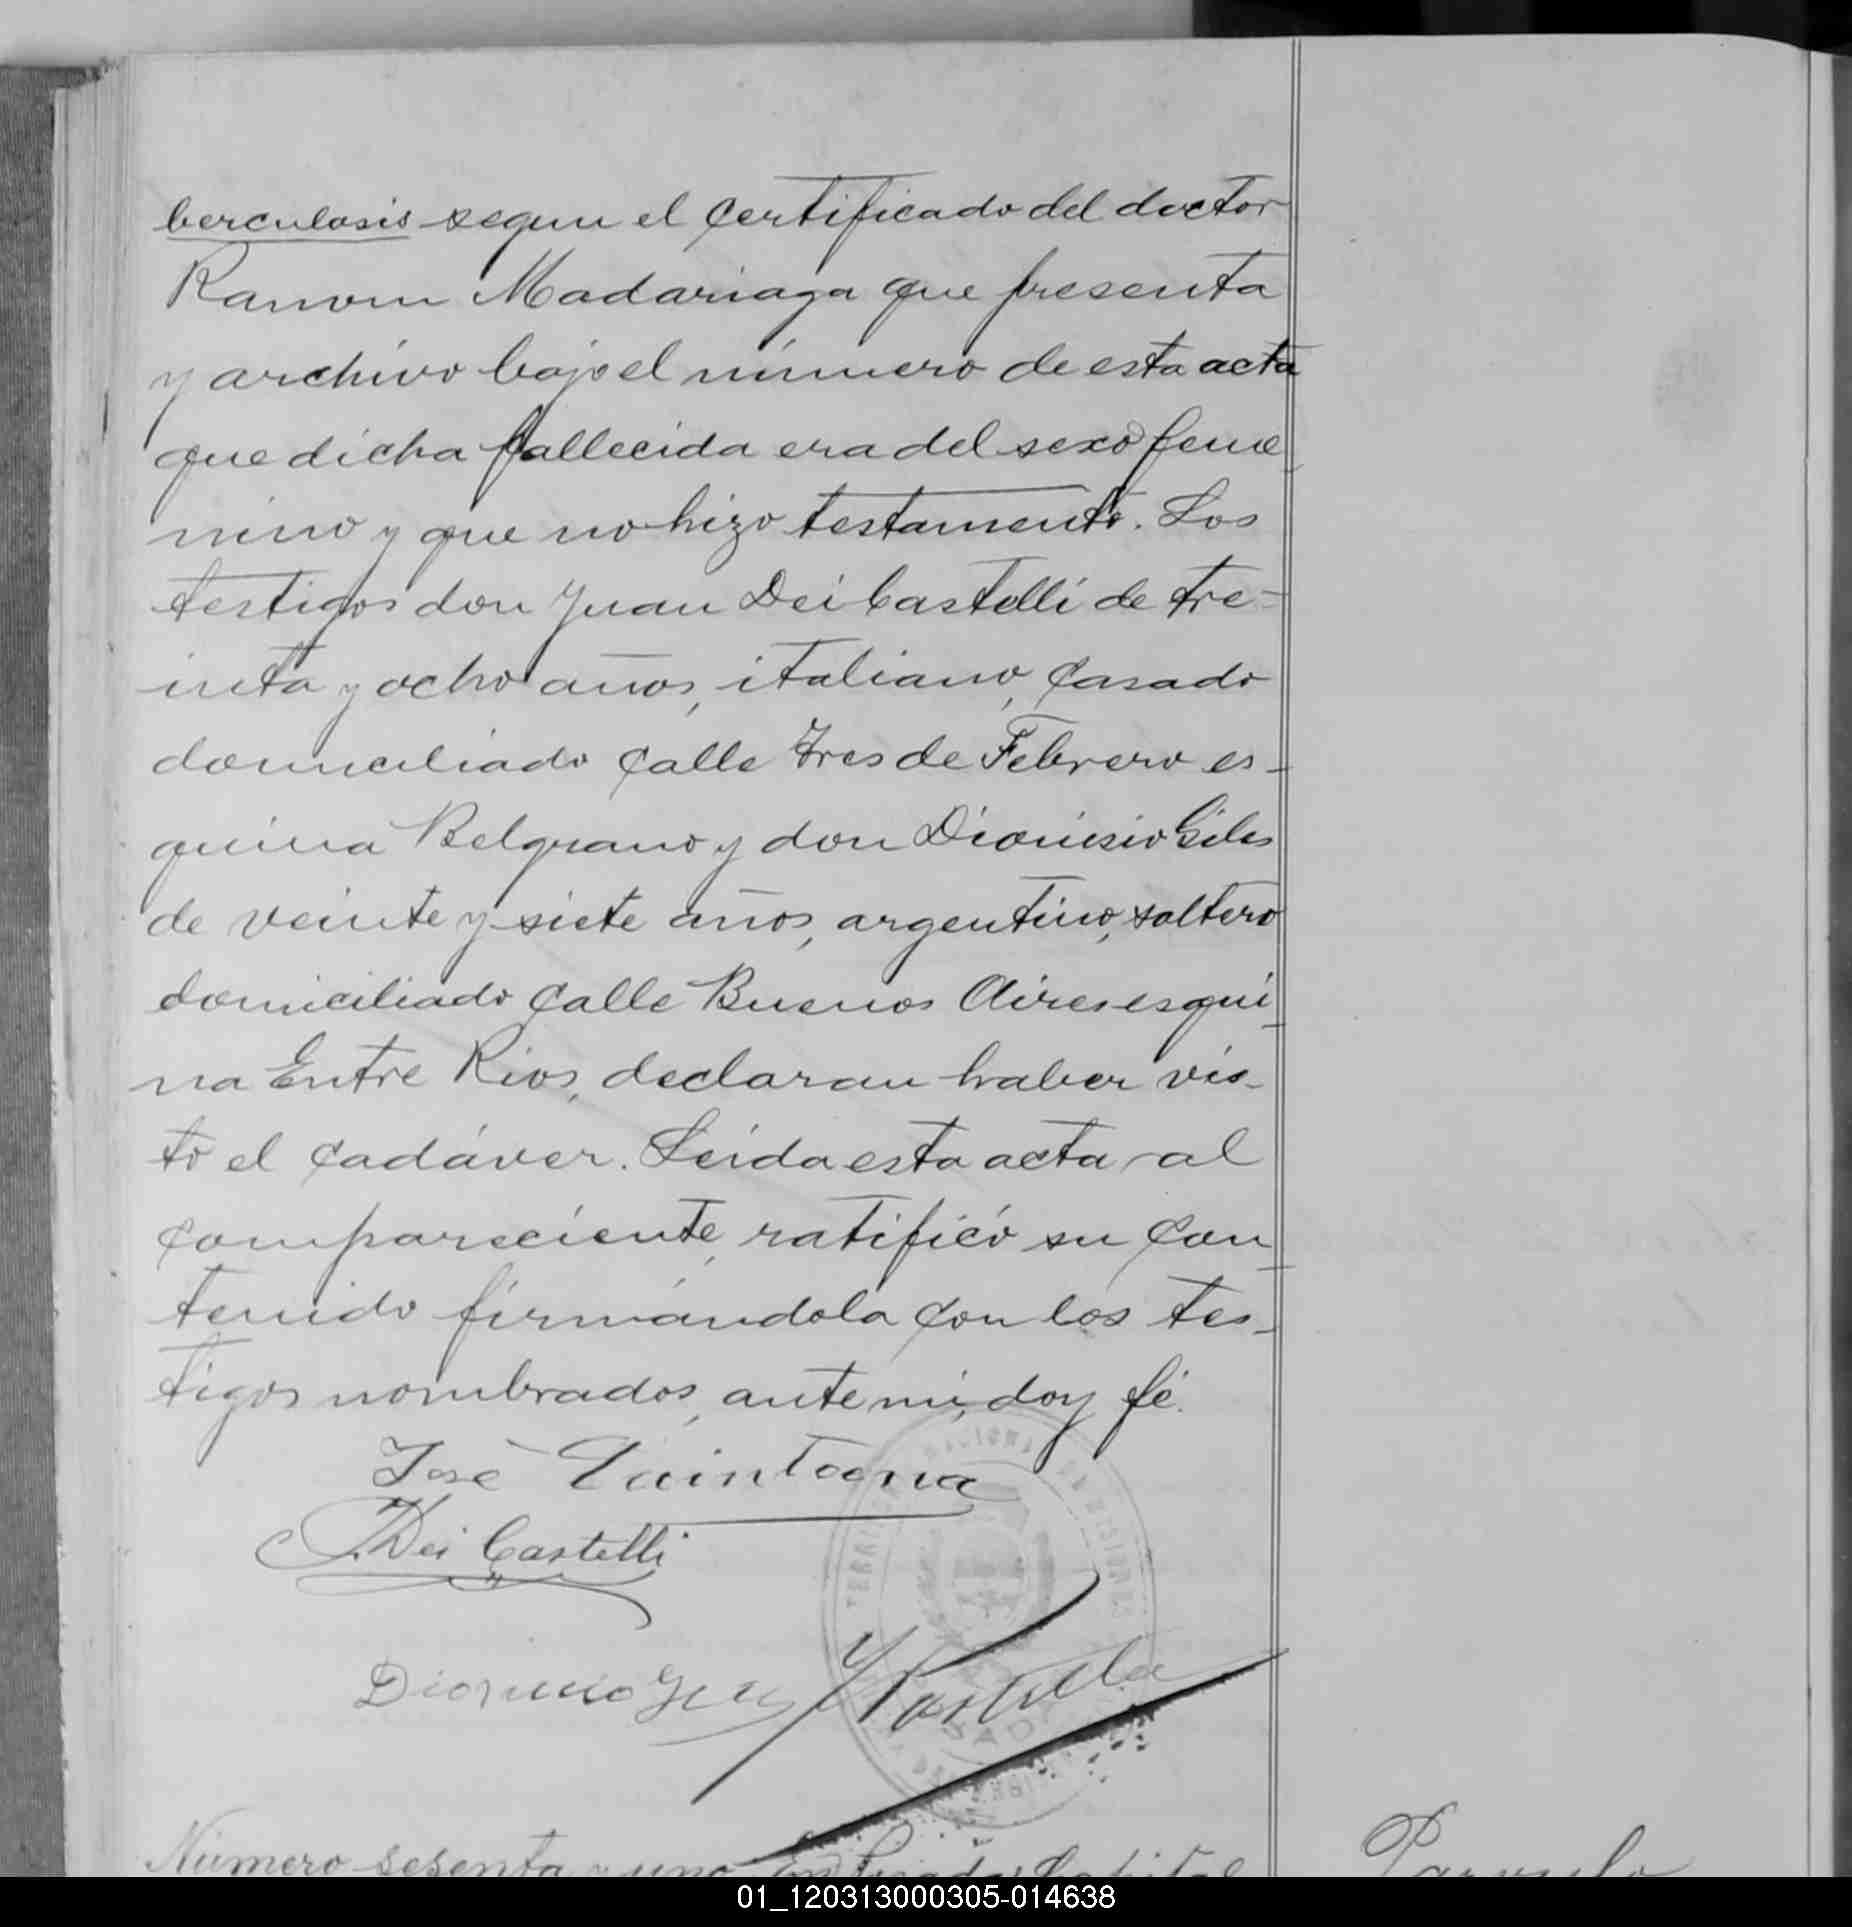 berculosis segun el certificado del doctor
Ramon Madariaga que presenta
y archivo bajo el número de esta acta
que dicha fallecida era del sexo feme
nino y que no hizo testamento. Los
testigos don Juan Dei Castelli de tre-
inta y ocho años, italiano, casado
domiciliado calle Tres de Febrero es-
quina Belgrano y don Dionisio Giles
de veinte y siete años, argentino, soltero
domiciliado calle Buenos Aires esqui-
na Entre Rios, declaran haber vis-
to el cadáver. Leída esta acta al
compareciente, ratificó su con-
tenido firmándola con los tes-
tigos nombrados, ante mi, doy fé.
José Quintana
J. Dei Castelli
Número sesenta y uno En Posadas Capital
01_120313000305-014638